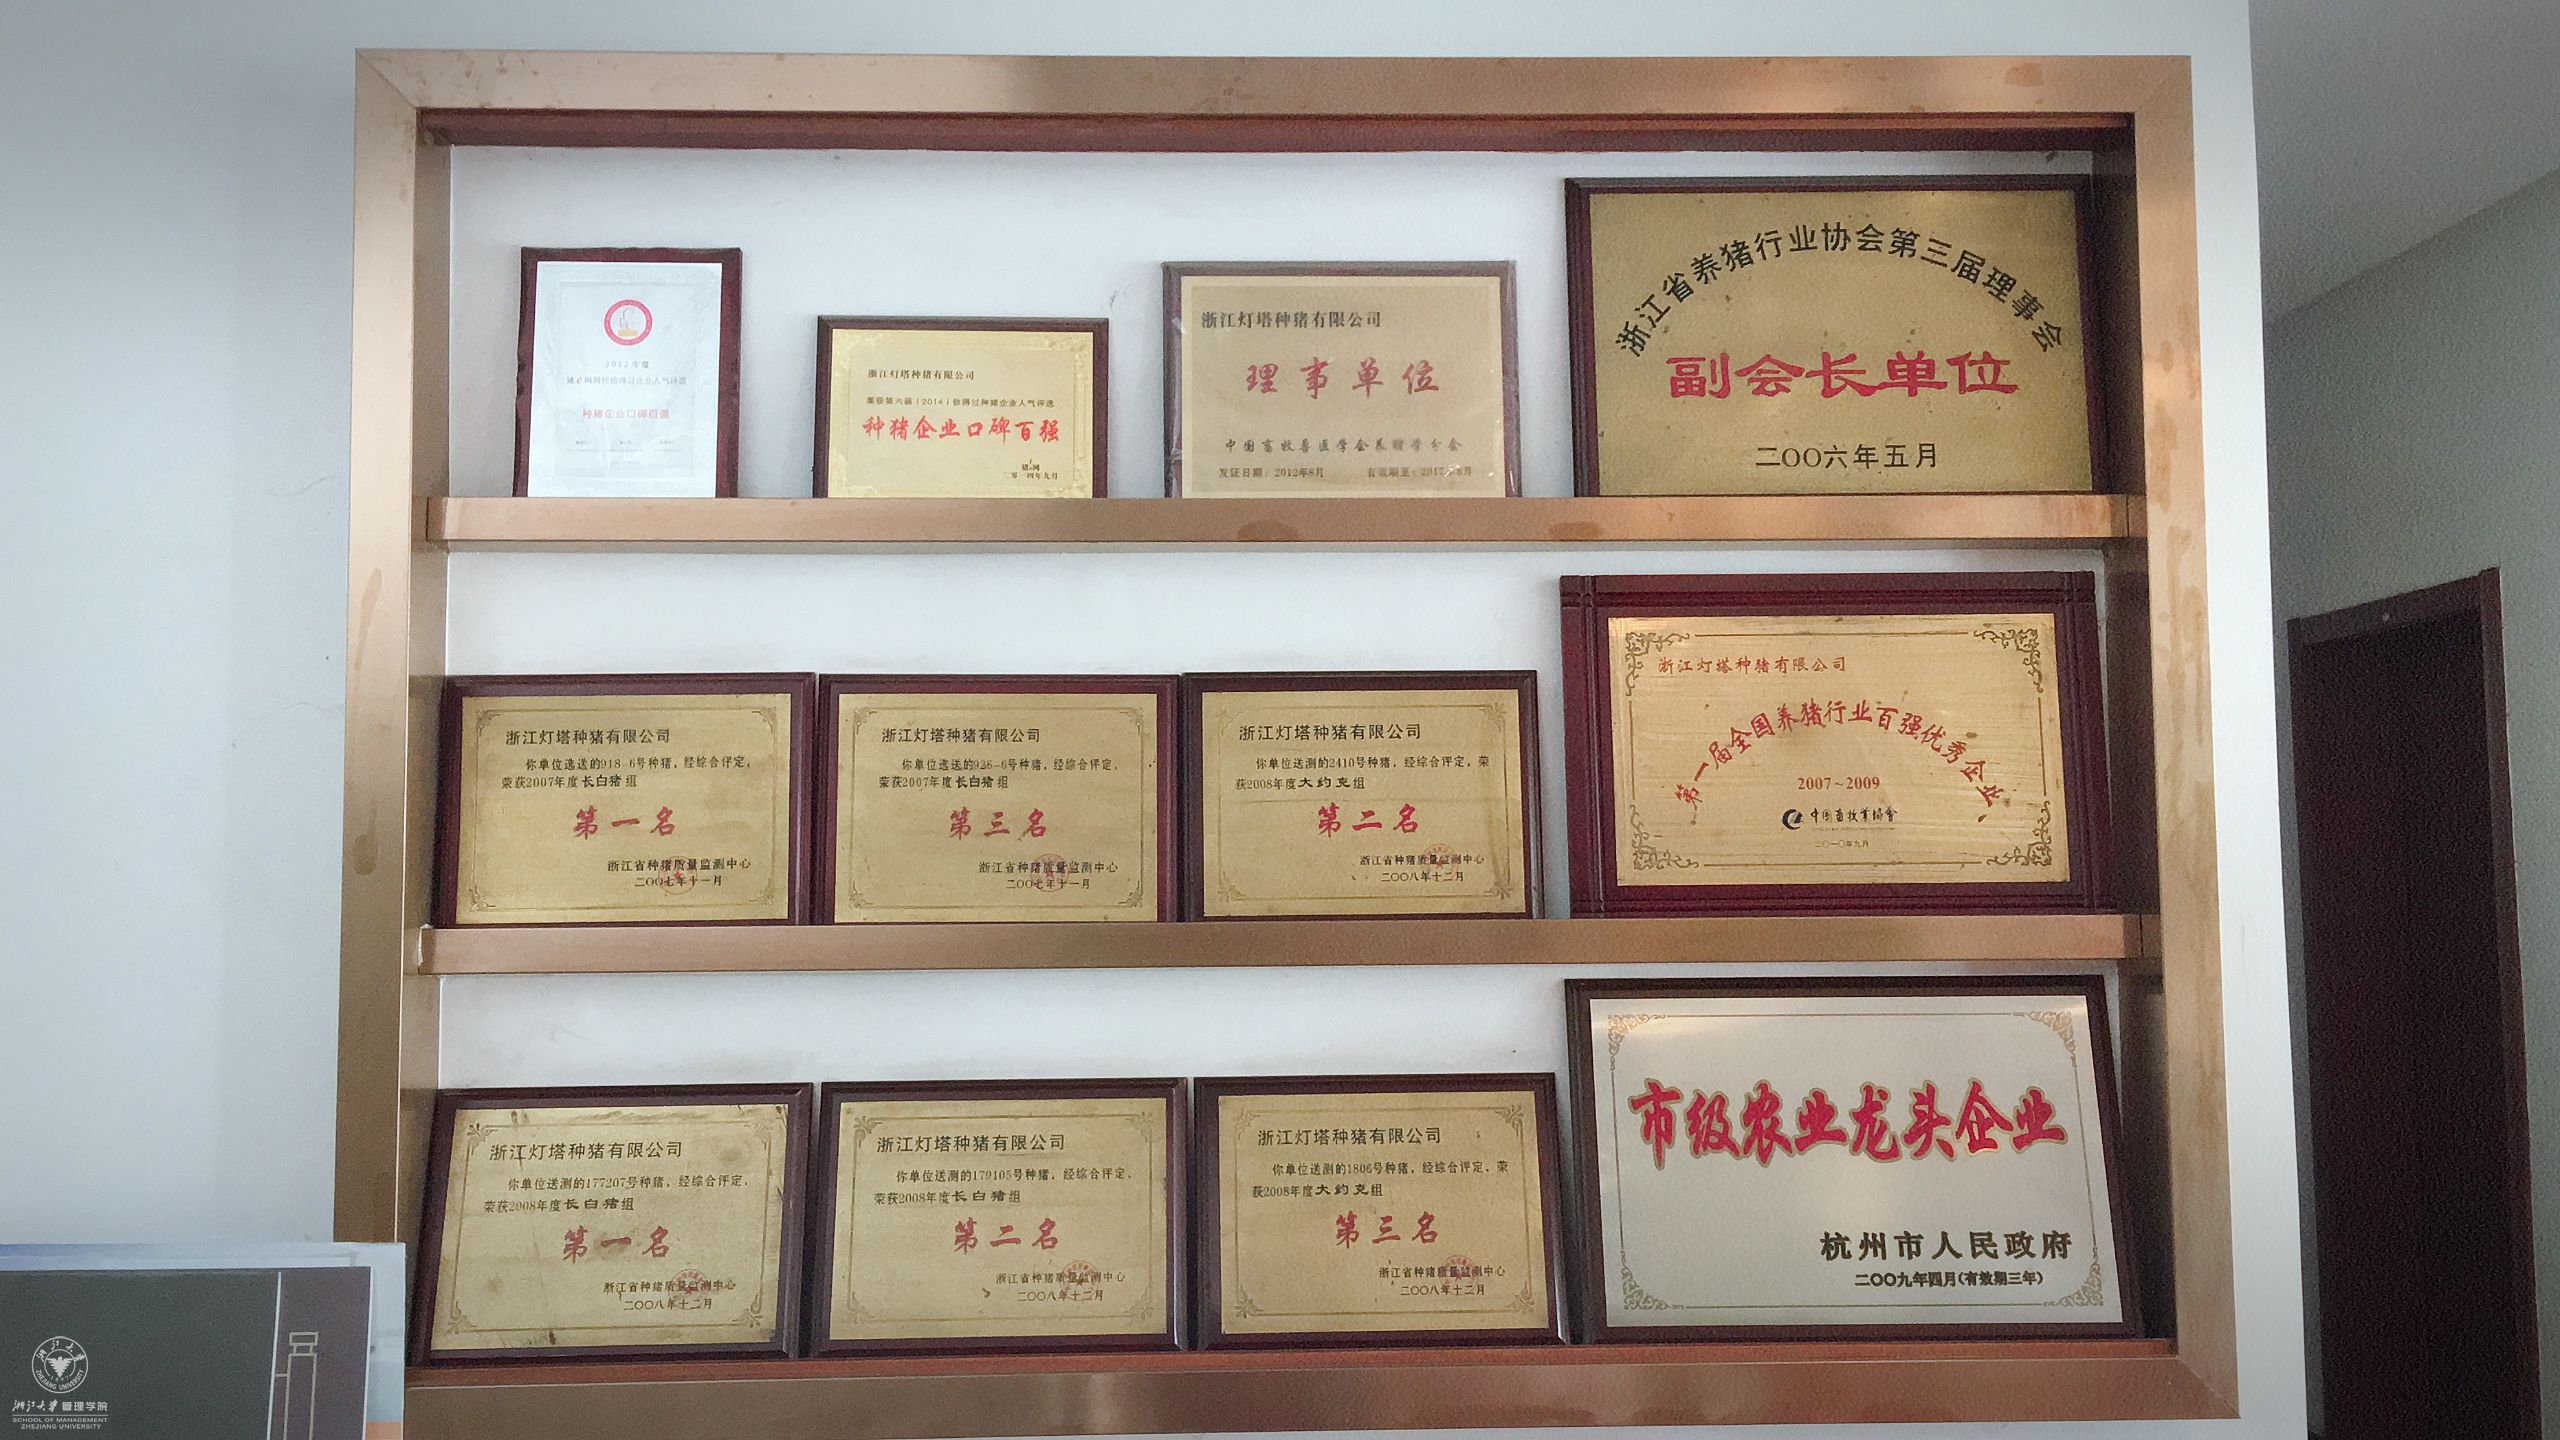 2012年度
猪e网网民信得过企业人气评选
种猪企业口碑百强
浙江灯塔种猪有限公司
荣获第六届（2014）信得过种猪企业人气评选
种猪企业口碑百强
猪e网
二零一四年九月
浙江灯塔种猪有限公司
理事单位
中国畜牧兽医学会养猪学分会
发证日期：2012年8月 有效期至：2017年8月
浙江省养猪行业协会第三届理事会
副会长单位
二〇〇六年五月
浙江灯塔种猪有限公司
你单位选送的918-6号种猪，经综合评定，
荣获2007年度长白猪组
第一名
浙江省种猪质量监测中心
二〇〇七年十一月
浙江灯塔种猪有限公司
你单位选送的926-6号种猪，经综合评定，
荣获2007年度长白猪组
第三名
浙江省种猪质量监测中心
二〇〇七年十一月
浙江灯塔种猪有限公司
你单位送测的2410号种猪，经综合评定，荣
获2008年度大约克组
第二名
浙江省种猪质量监测中心
二〇〇八年十二月
浙江灯塔种猪有限公司
第一届全国养猪行业百强优秀企业
2007~2009
中国畜牧业协会
二〇一〇年九月
浙江灯塔种猪有限公司
你单位送测的177207号种猪，经综合评定，
荣获2008年度长白猪组
第一名
浙江省种猪质量监测中心
二〇〇八年十二月
浙江灯塔种猪有限公司
你单位送测的179105号种猪，经综合评定，
荣获2008年度长白猪组
第二名
浙江省种猪质量监测中心
二〇〇八年十二月
浙江灯塔种猪有限公司
你单位送测的1806号种猪，经综合评定，荣
获2008年度大约克组
第三名
浙江省种猪质量监测中心
二〇〇八年十二月
市级农业龙头企业
杭州市人民政府
二〇〇九年四月(有效期三年)
浙江大学
ZHEJIANG UNIVERSITY
浙江大学管理学院
SCHOOL OF MANAGEMENT
ZHEJIANG UNIVERSITY